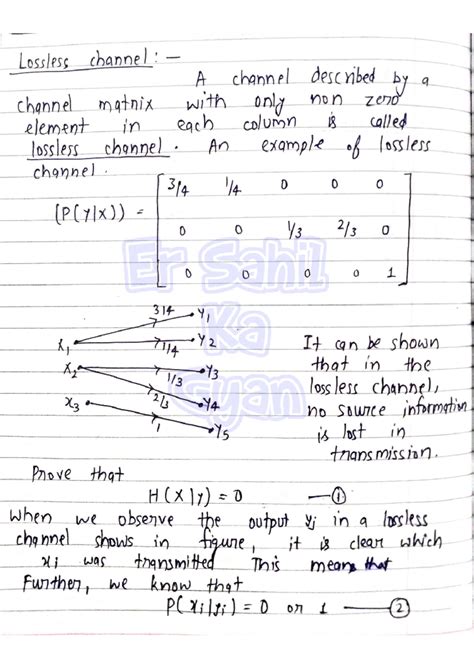 Lossless channel : —
A channel described by a
channel matrix with only non zero
element in each column is called
lossless channel. An example of lossless
channel.
[P(Y|X)] = [ 3/4 1/4 0 0 0
0 0 1/3 2/3 0
0 0 0 0 1 ]
Er Sahil
Ka
Gyan
x1 3/4 y1
1/4 y2
x2 1/3 y3
2/3 y4
x3 1 y5
It can be shown
that in the
lossless channel,
no source information
is lost in
transmission.
Prove that
H(X|Y) = 0 — ①
When we observe the output yj in a lossless
channel shows in figure, it is clear which
xi was transmitted This means that
Further, we know that
P(xi|yj) = 0 or 1 — ②